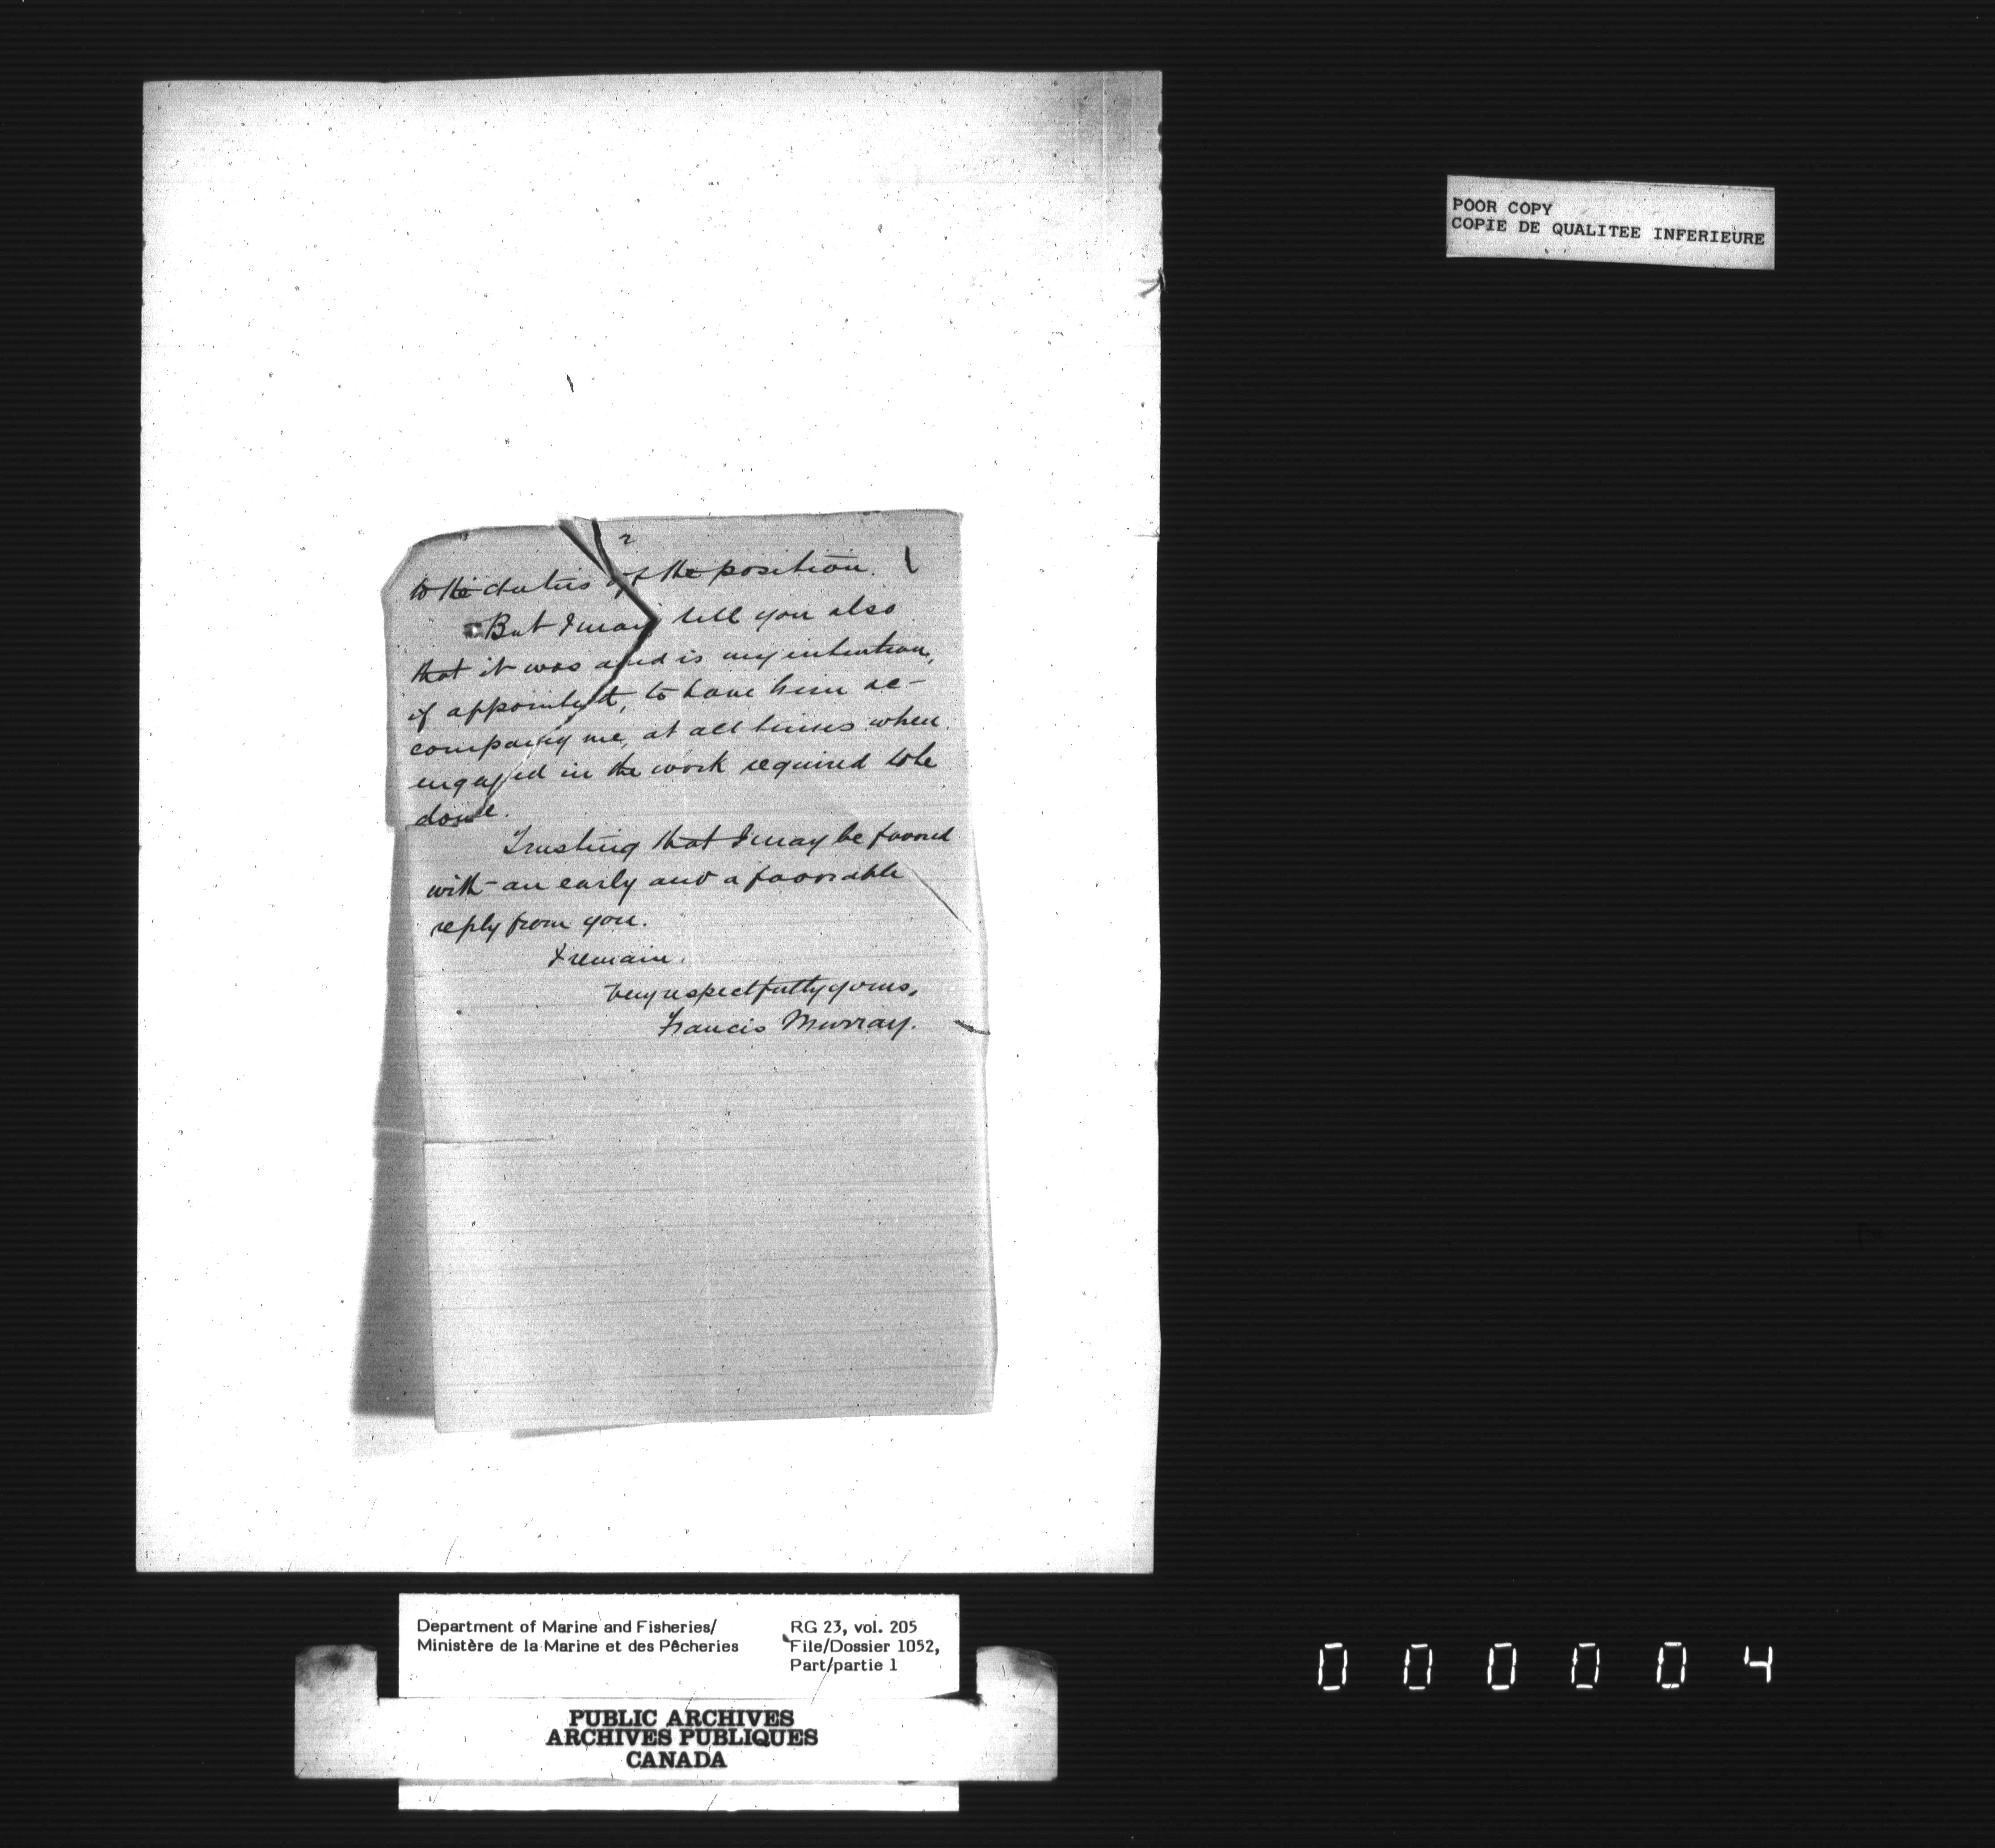 POOR COPY
COPIE DE QUALITEE INFERIEURE
2
to the duties of the position.
But I may tell you also
that it was and is my intention,
if appointed, to have him ac-
company me, at all times when
engaged in the work required to be
done.
Trusting that I may be favored
with an early and a favorable
reply from you.
I remain.
Very respectfully yours,
Francis Murray.
Department of Marine and Fisheries/
Ministère de la Marine et des Pêcheries
RG 23, vol. 205
File/Dossier 1052,
Part/partie 1
PUBLIC ARCHIVES
ARCHIVES PUBLIQUES
CANADA
000004